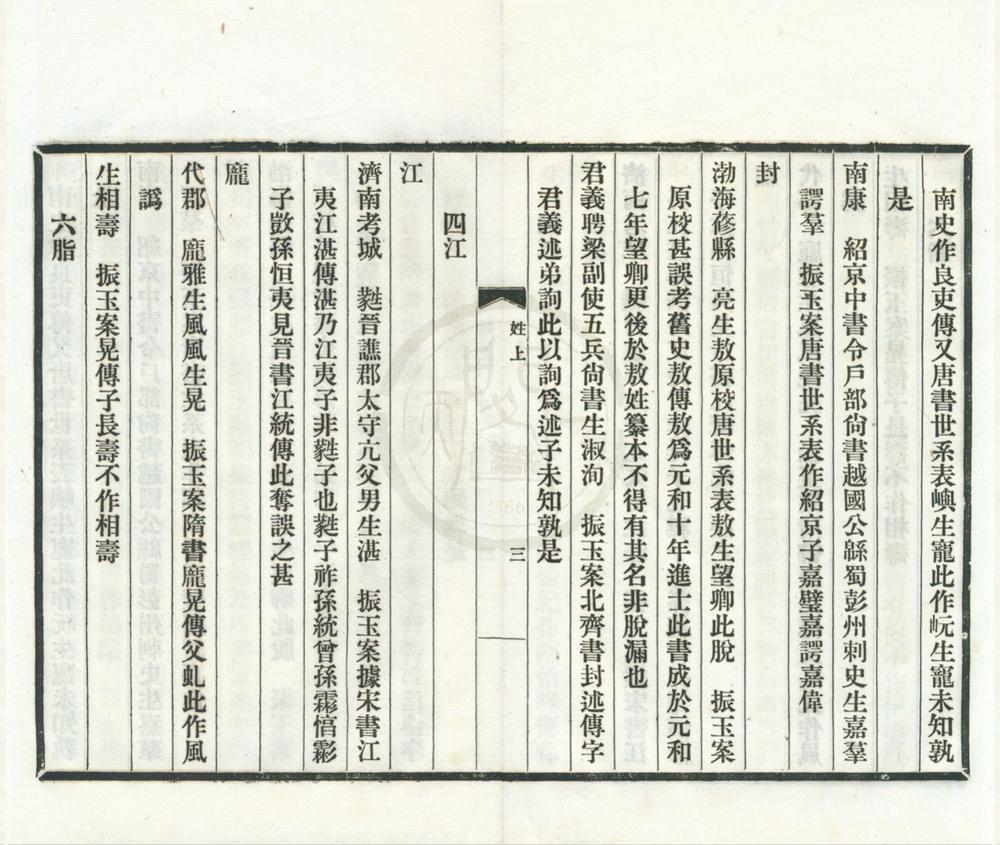 南史作良吏傳又唐書世系表嶼生寵此作岏生寵未知孰
是
南康　紹京中書令戶部尙書越國公緜蜀彭州刺史生嘉羣
諤羣　振玉案唐書世系表作紹京子嘉璧嘉諤嘉偉
封
渤海蓚縣　亮生敖原校唐世系表敖生望卿此脫　振玉案
原校甚誤考舊史敖傳敖爲元和十年進士此書成於元和
七年望卿更後於敖姓纂本不得有其名非脫漏也
君義聘梁副使五兵尙書生淑洵　振玉案北齊書封述傳字
君義述弟詢此以詢爲述子未知孰是
姓上
三
四江
江
濟南考城　㽛晉譙郡太守亢父男生湛　振玉案據宋書江
夷江湛傳湛乃江夷子非㽛子也㽛子祚孫統曾孫霦惇彪
子斅孫恒夷見晉書江統傳此奪誤之甚
龐
代郡　龐雅生風風生晃　振玉案隋書龐晃傳父虬此作風
譌
生相壽　振玉案晃傳子長壽不作相壽
六脂